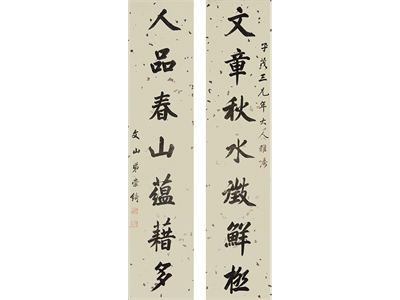 子茂三兄年大人雅属
文章秋水澂鮮極
人品春山蘊藉多
文山弟崇綺